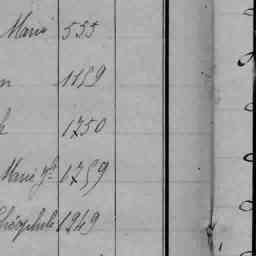 Marie 555
n 1159
h 1750
Marie Jh 1759
Théophile 1949